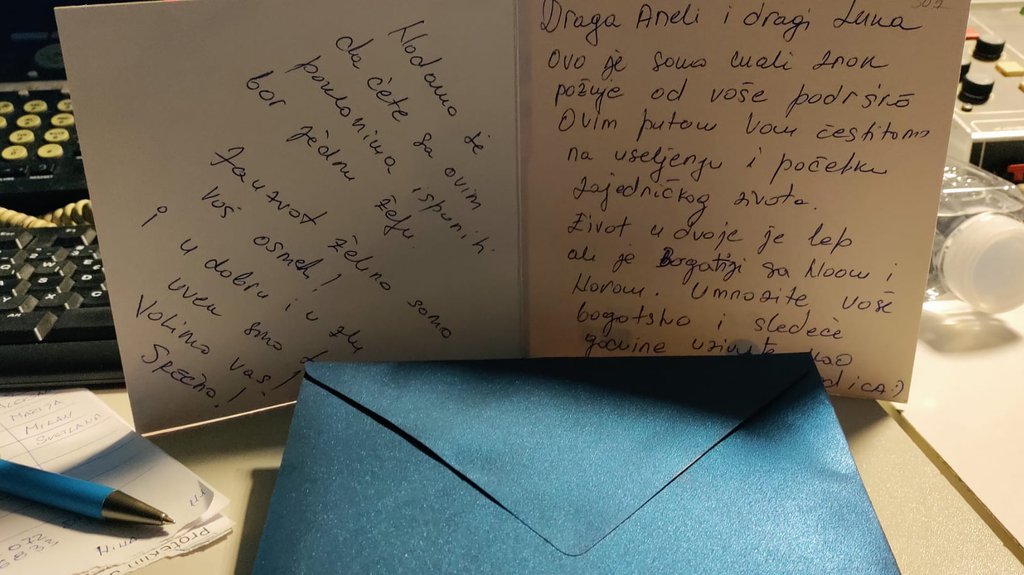 Nadamo se
da ćete sa ovim
poklonima ispuniti
bar jednu želju.
Zauzvrat želimo samo
vaš osmeh!
i u dobru i u zlu
uvek smo
Volimo vas!
Srećno!
Draga Aneli i dragi Luka
Ovo je samo mali znak
pažnje od vaše podrške
Ovim putem Vam čestitamo
na useljenju i početku
zajedničkog života.
Život u dvoje je lep
ali je Bogatiji sa Noom i
Norom. Umnozite vaše
bogatstvo i sledeće
godine uživajte kao
MARIJA
MILAN
SVETLANA
protekim